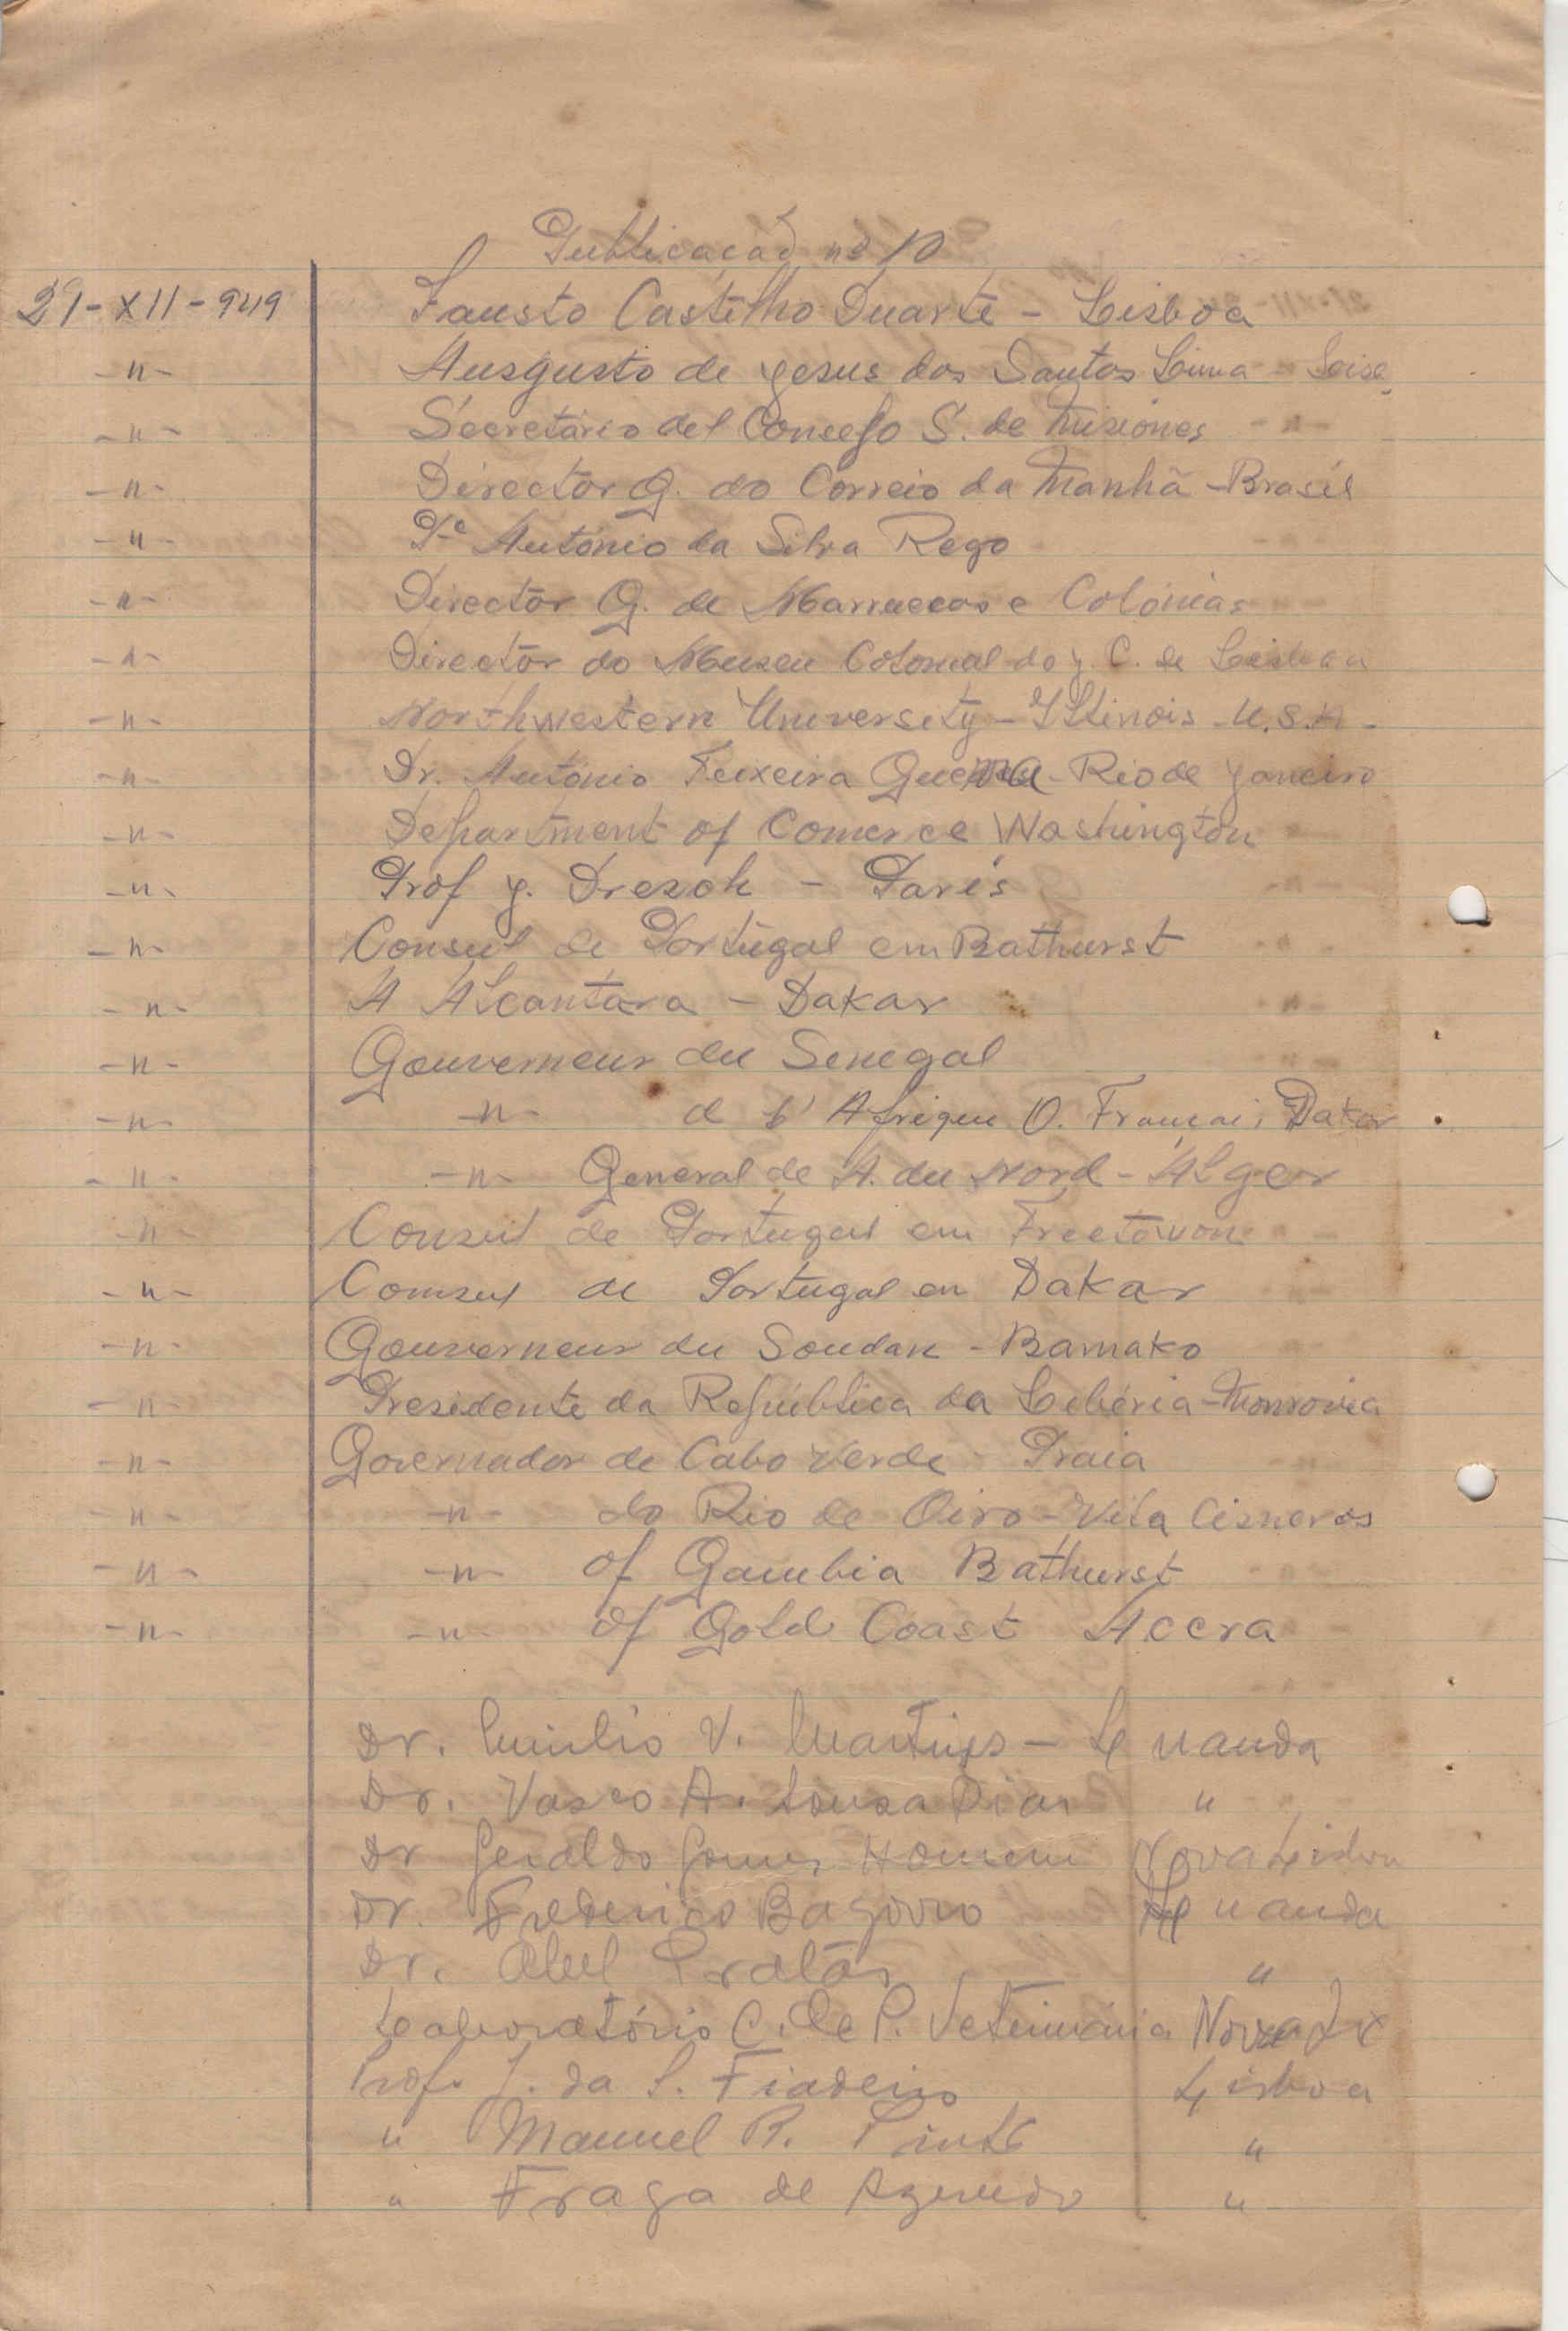 Publicação nº 10
29-XII-949 Fausto Castelho Duarte - Lisboa
-"- Ausgusto de Jesus dos Santos Lima - Lisb.
-"- Secretário del Consejo S. de Misiones -"-
-"- Director G. do Correio da Manhã - Brasil
-"- Pe António da Silva Rego
-"- Director G. de Marruecos e Colonias
-"- Director do Museu Colonial do J. C. de Lisboa
-"- Northwestern University - Illinois U.S.A -
-"- Dr. António Teixeira Guerra - Rio de Janeiro
-"- Department of Comerce Washington
-"- Prof J. Dresch - Paris
-"- Consul de Portugal em Bathurst
-"- A Alcantara - Dakar
-"- Gouverneur du Senegal
-"- -"- d l'Afrique O. Françai, Dakar
-"- -"- General de A. du Nord - Alger
-"- Consul de Portugal em Freetown
-"- Consul de Portugal en Dakar
-"- Gouverneur du Soudan - Bamako
-"- Presidente da República da Libéria - Monrovia
-"- Governador de Cabo Verde - Praia
-"- -"- do Rio de Oiro - Vila Cisneros
-"- -"- of Gambia Bathurst
-"- -"- of Gold Coast Accra
Dr. V. Martins - Luanda
Dr. Vasco A. Sousa Dias "
Dr Geraldo Gomes Homem Nova Lisboa
Dr. Frederico Bagorro Luanda
Dr. Abel Pratas "
Laboratório C. de P. Veterinária Nova Lx
Prof. J. da S. Fiadeiro Lisboa
" Manuel R. Pinto "
" Fraga de Azevedo "